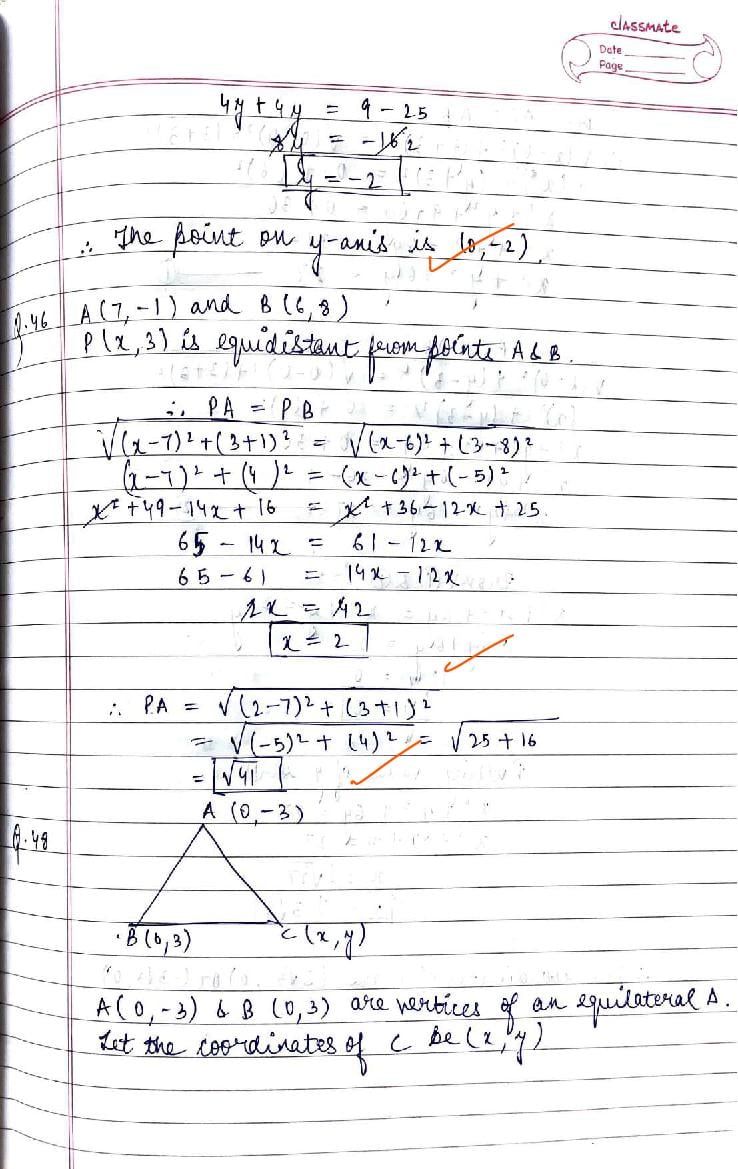 classmate
Date
Page
4y + 4y = 9 - 25
8y = -16 2
y = -2
∴ The point on y-axis is (0, -2).
Q.46 A(7, -1) and B(6, 8)
P(x, 3) is equidistant from points A & B.
∴ PA = PB
√(x-7)² + (3+1)² = √(x-6)² + (3-8)²
(x-7)² + (4)² = (x-6)² + (-5)²
x² + 49 - 14x + 16 = x² + 36 - 12x + 25
65 - 14x = 61 - 12x
65 - 61 = 14x - 12x
2x = 42
x = 2
∴ PA = √(2-7)² + (3+1)²
= √(-5)² + (4)² = √25 + 16
= √41
A (0, -3)
Q.48
B(0,3) C(x, y)
A(0, -3) & B (0, 3) are vertices of an equilateral Δ.
Let the coordinates of C be (x, y)